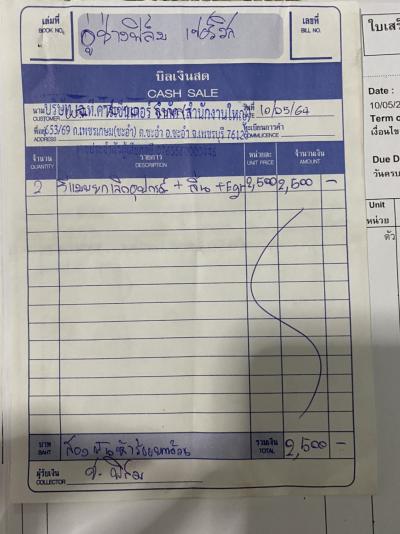 เล่มที่
BOOK NO.
อู่ช่างฟิล์ม เซอร์วิส
เลขที่
BILL NO.
บิลเงินสด
CASH SALE
นาม
CUSTOMER
บริษัท (สำนักงานใหญ่)
วันที่
10/05/64
ที่อยู่
ADDRESS
653/69 ถ.เพชรเกษม(ชะอำ) ต.ชะอำ อ.ชะอำ จ.เพชรบุรี 76120
ทะเบียนการค้า
COMM.LICENCE
จำนวน
QUANTITY
รายการ
DESCRIPTION
หน่วยละ
UNIT PRICE
จำนวนเงิน
AMOUNT
2 + ลิ้น + Egr 2,500 2,500 -
บาท
BAHT
สองพันห้าร้อยบาทถ้วน
รวมเงิน
TOTAL
2,500 -
ผู้รับเงิน
COLLECTOR
ช. ฟิล์ม
ใบเสร็
Date :
10/05/2
Term o
เงื่อนไข
Due D
วันครบ
Unit
หน่วย
ตัว